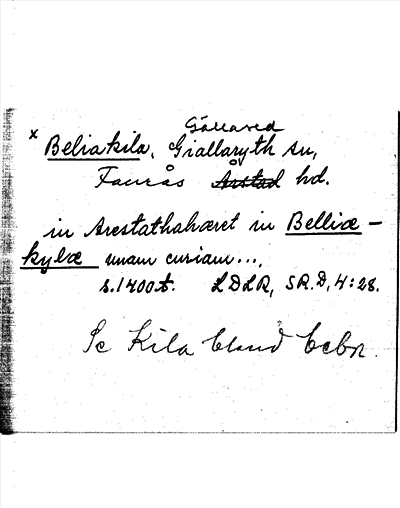 Gällared
x Beliakila, Giallaryth sn,
Faurås Årstad hd.
in Arestathahæret in Belliæ-
kylæ unam curiam...,
s. 1400 t. LDLR, SR. D, 4:28.
Se Kila bland bebn.